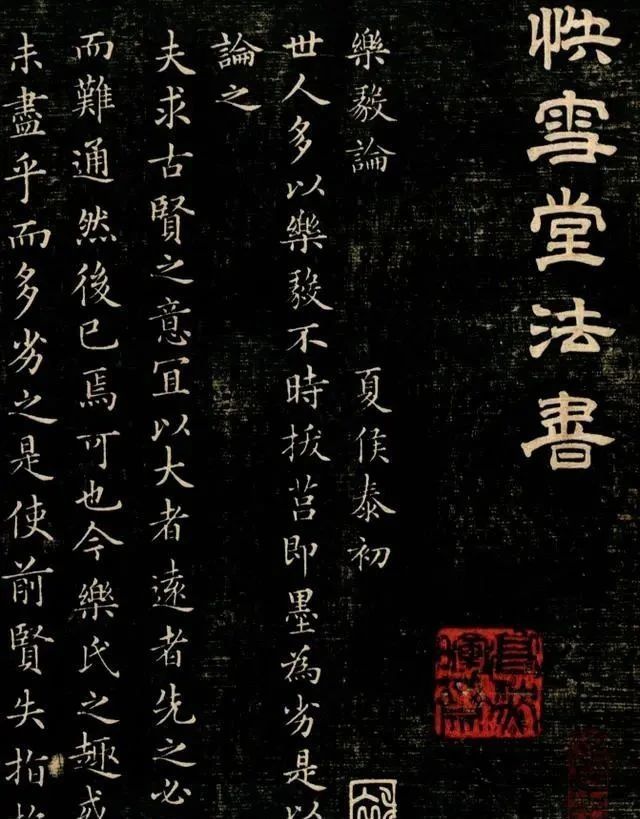 快雪堂法書
樂毅論 夏侯泰初
世人多以樂毅不時拔莒即墨為劣是以
論之
夫求古賢之意宜以大者遠者先之必
而難通然後已焉可也今樂氏之趣或
未盡乎而多劣之是使前賢失指